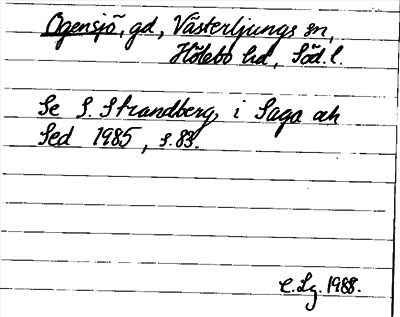 Ogensjö, gd, Västerljungs sn,
Hölebo hd, Söd.l.
Se S. Strandberg, i Saga och
Sed 1985, s. 83.
C.Lg. 1988.